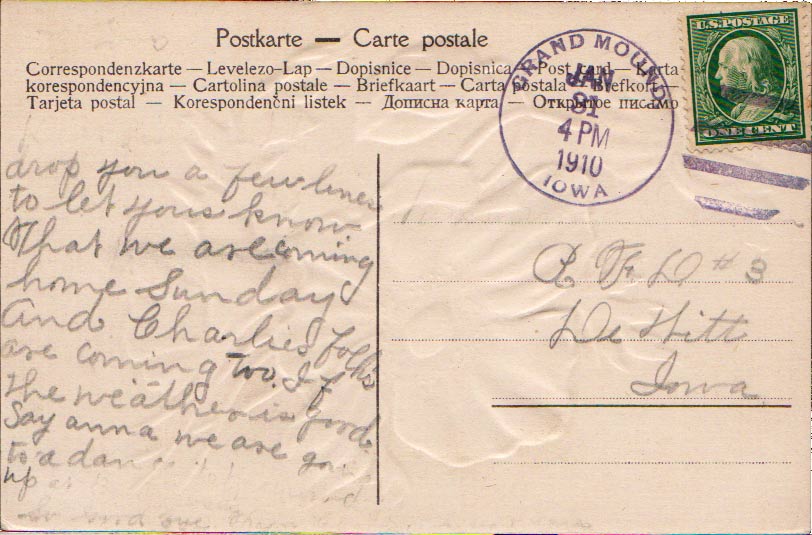 Postkarte — Carte postale
Correspondenzkarte — Levelezo-Lap — Dopisnice — Dopisnica — Post Card — Karta
korespondencyjna — Cartolina postale — Briefkaart — Carta postala — Brefkort —
Tarjeta postal — Korespondenčni listek — Дописна карта — Открытое писмо
U.S. POSTAGE
ONE CENT
GRAND MOUND
JAN
31
4 PM
1910
IOWA
drop you a few lines
to let yous know
That we are coming
home Sunday
And Charlies folks
are coming too. If
the weather is good
Say anna we are
to a
up
R. F. D # 3
De Witt
Iowa